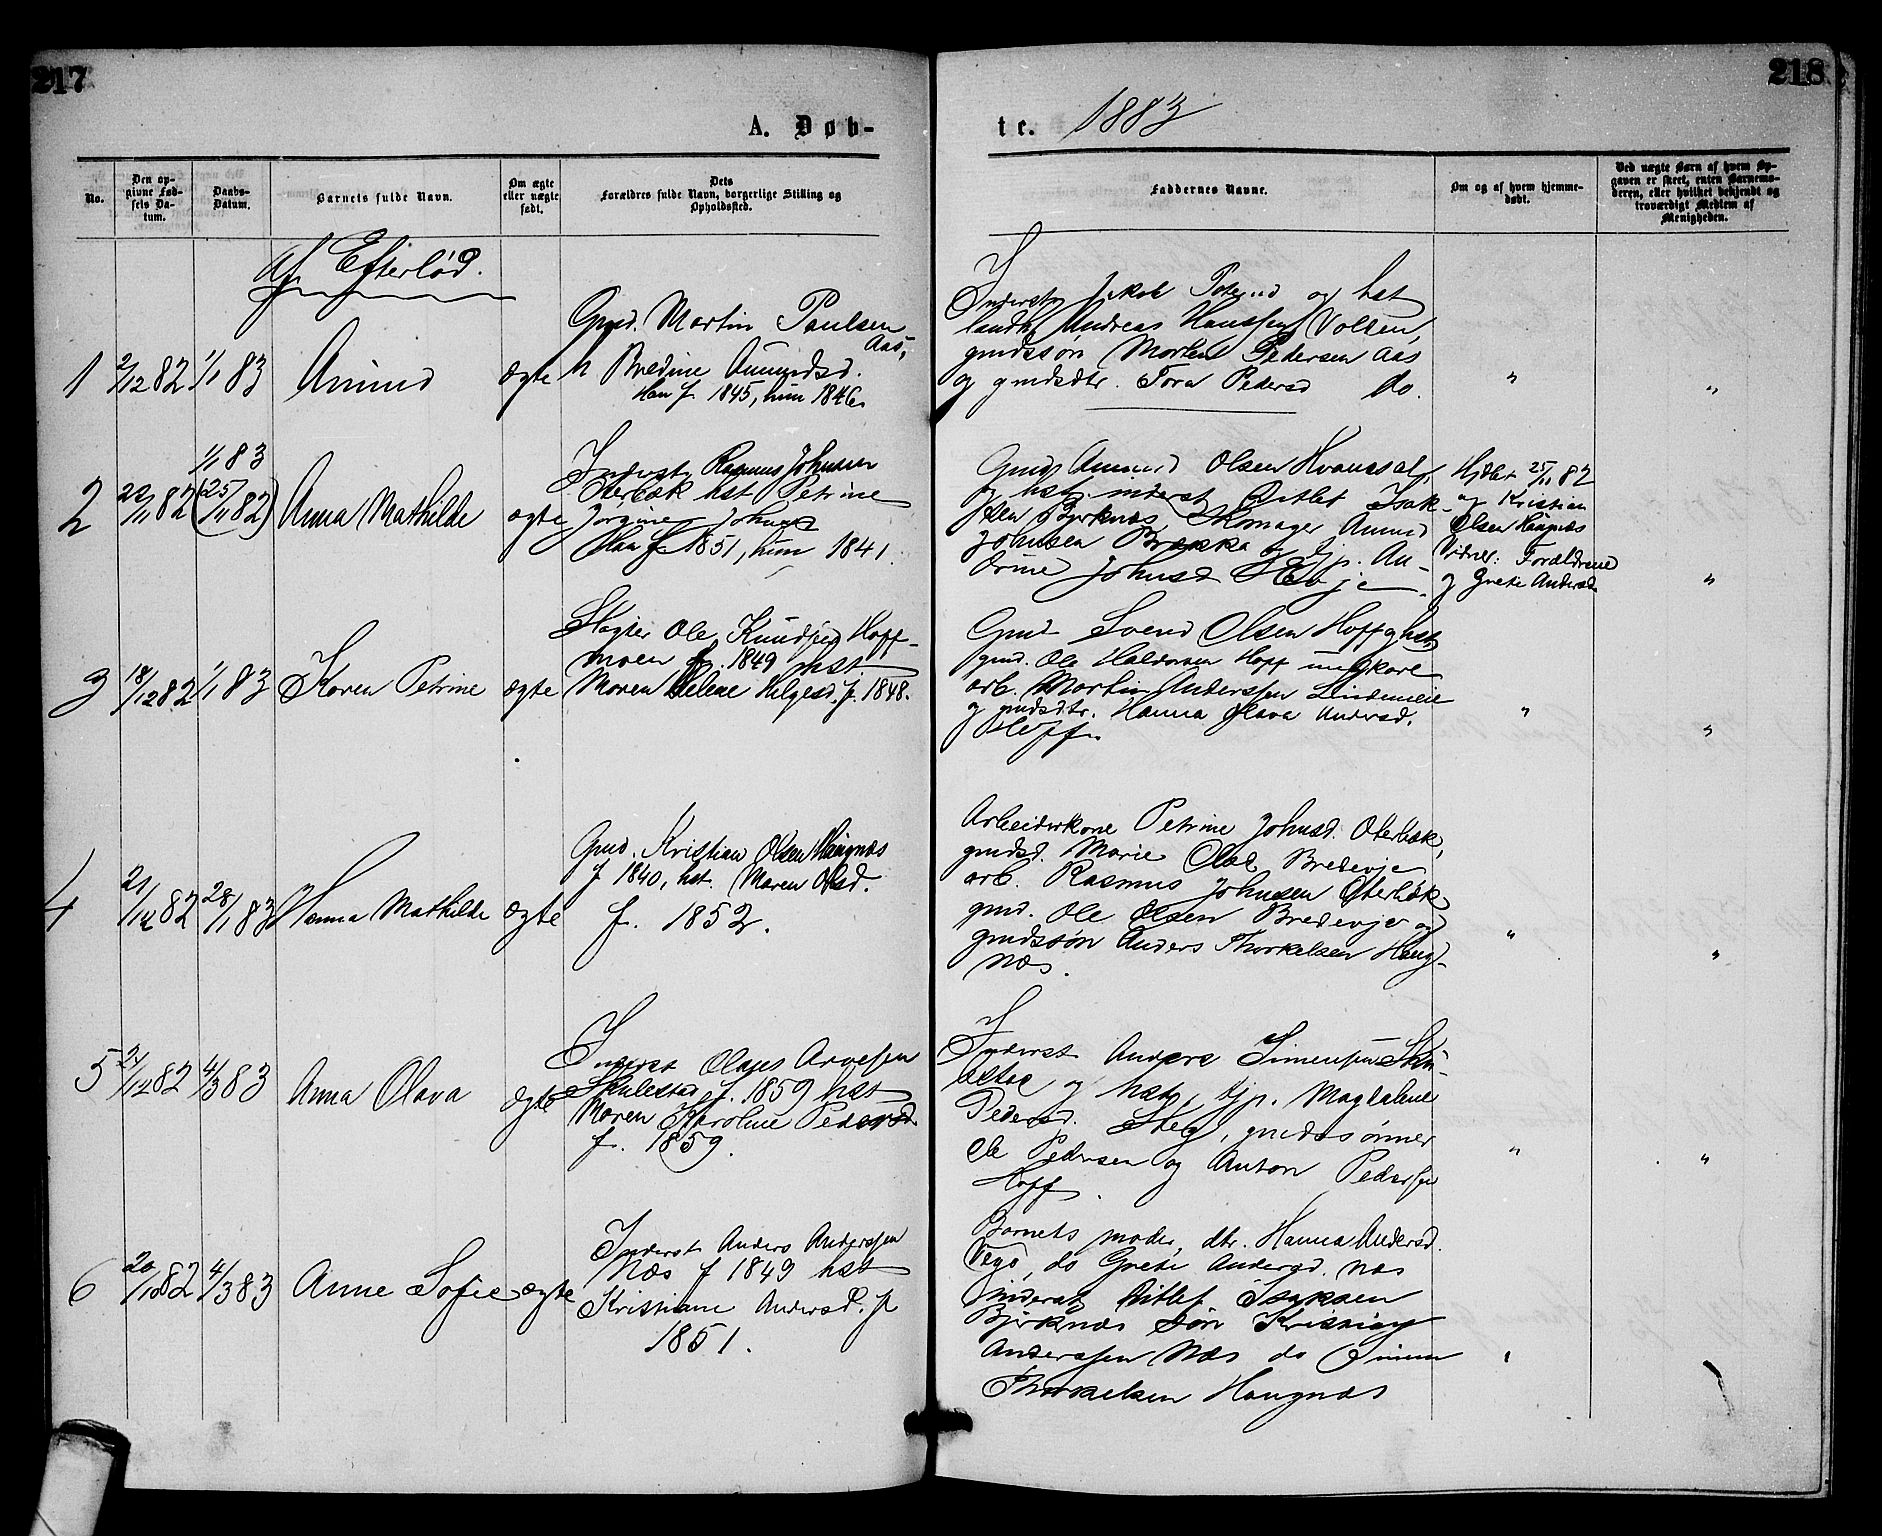 217
218
A. Døb-
te. 1883
No.
Den op-
givne Fød-
sels Da-
tum.
Daabs-
Datum.
Barnets fulde Navn.
Om ægte
eller uægte
født.
Dets
Forældres fulde Navn, borgerlige Stilling og
Opholdsted.
Faddernes Navne.
Om og af hvem hjemme-
døbt.
Ved uægte Børn af hvem Op-
gaven er skeet, enten Barnemo-
deren, eller hvilket bekjendt og
troværdigt Medlem af
Menigheden.
Af Efterlød.
1 2/12 82 1/1 83 Amund ægte
Gmd. Martin Paulsen
Aas,
h Bredine Amundsd.
Han f. 1845, hun 1846.
Inderst Jakob og hst
landh. Andreas Hanssen Volsen,
gmdssøn Morten Pedersen Aas
og gmdsdtr. Tora Pedersd do.
" "
2 22/11 82 1/1 83
(25/11 82) Anna Mathilde ægte
Inderst Rasmus Johnsen
Oterbæk hst Petrine
Jorgine Johnsd
Han f. 1851, hun 1841.
Gmd. Amund Olsen Hvamsal,
og hst. inderst Ditlef Isak-
sen Bjerknæs, Skomager Amund
Johnsen Brække og tjp. An-
drine Johnsd Hevje.
Hjdbt 25/11 82
og Kristian
Olsen Haugnæs
Vidner: Forældrene
og Grete Andersd
"
3 18/12 82 1/1 83 Karen Petrine ægte
Slagter Ole Knudsen Hoff-
moen f. 1849 hst
Maren Helene Helgesd. f. 1848.
Gmd Svend Olsen Hoff og hst
gmd. Ole Haldorsen Hoff ungkare
arb. Martin Anderssen Lindemeie
og gmdsdtr. Hanna Olava Andersd.
Hoff.
" "
4 21/12 82 28/1 83 Hanna Mathilde ægte
Gmd. Kristian Olsen Haugnæs
f 1840, hst. Maren Olsd.
f. 1852.
Arbeiderkone Petrine Johnsd. Oterbæk,
gmdsd. Marie Olsd. Bredevje
arb. Rasmus Johnsen Oterbæk
gmd. Ole Olsen Bredevje og
gmdssøn Anders Thorkelsen Haug-
næs.
" "
5 21/12 82 4/3 83 Anna Olava ægte
Inderst Olaus Arvesen
Skulestad f. 1859 hst
Maren Karoline Pedersd
f. 1859.
Inderst Anders Simensen Sku-
lestad og hst, tjp. Magdalene
Pedersd. Steg, gmdssønner
Ole Pedersen og Anton Pedersen
Hoff.
" "
6 20/12 82 4/3 83 Anne Sofie ægte
Inderst Anders Anderssen
Næs f 1849 hst
Kristiane Andersd. f
1851.
Barnets moder, dtr. Hanna Andersd.
do Grete Andersd. Næs
inderst Ditlef Isaksen
Bjerknæs søn Kristian
Anderssen Næs do
Thorkelsen Haugnæs